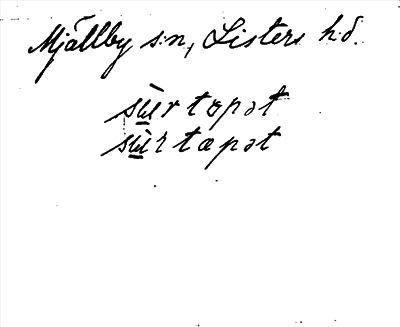 Mjällby s:n, Listers h:d.
sùrtɒpət
sùrtapət